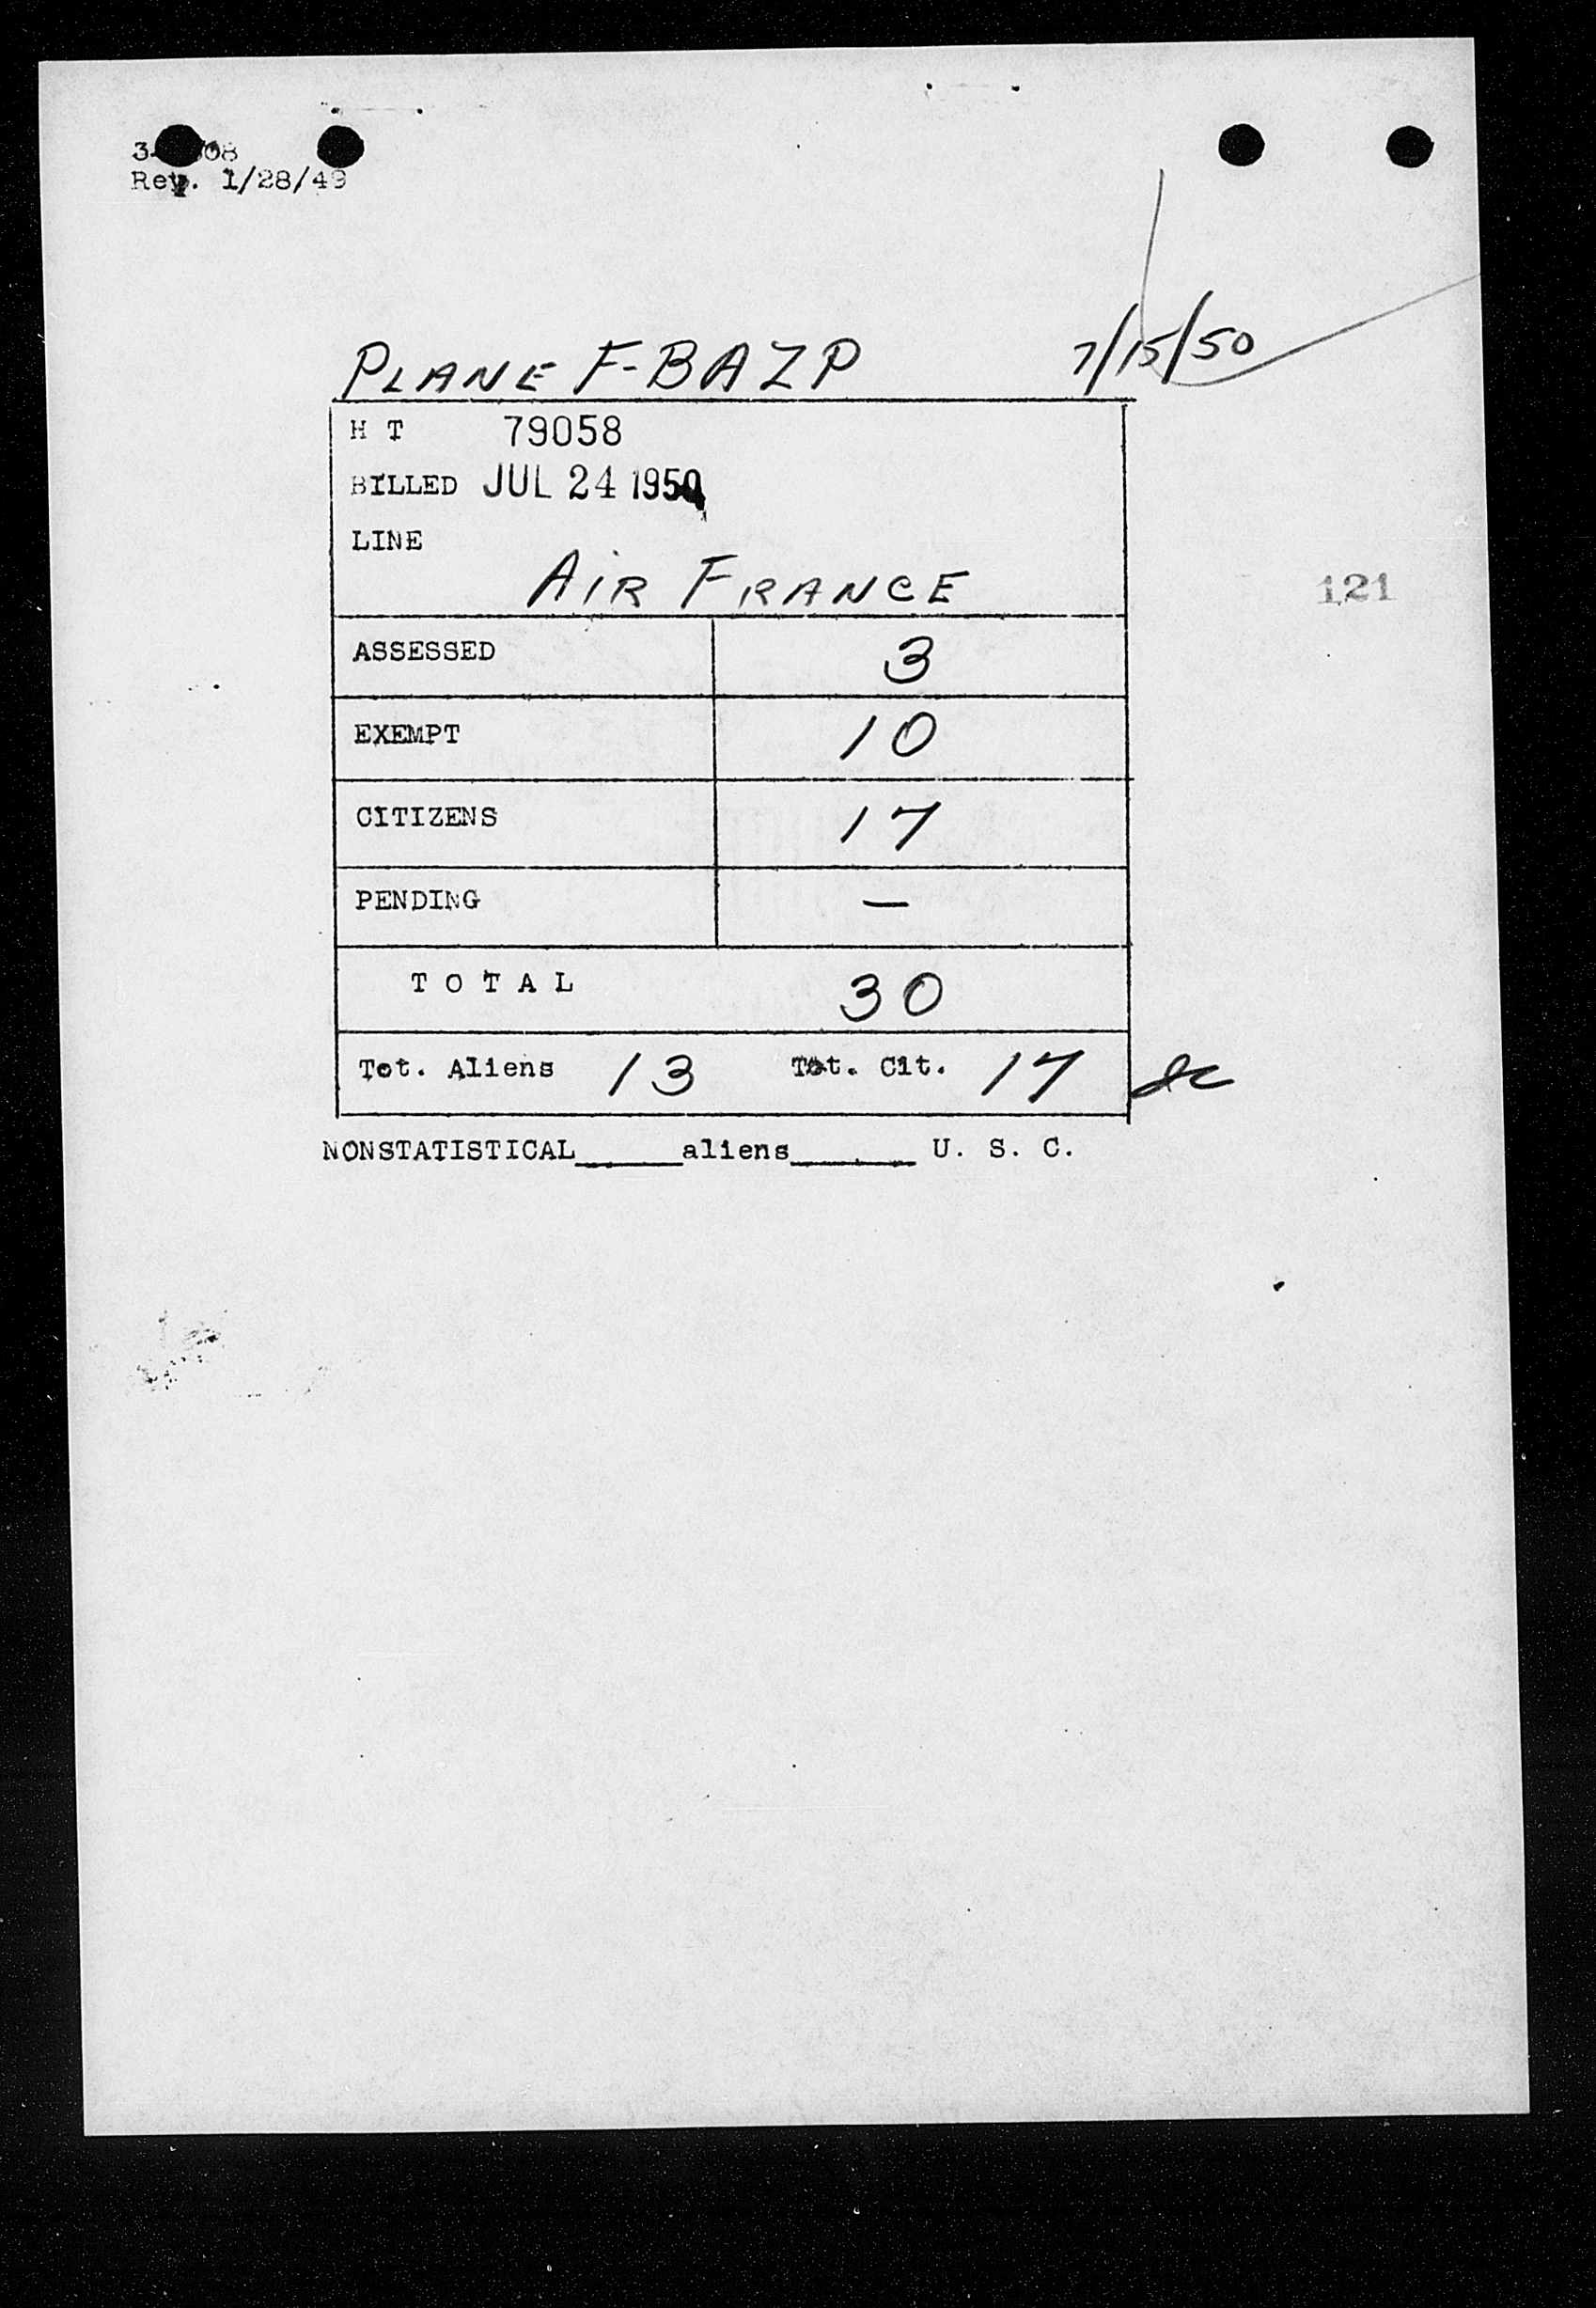 Rev. 1/28/49
PLANE F-BAZP 7/15/50
H T 79058
BILLED JUL 24 1950
LINE
AIR FRANCE
121
ASSESSED 3
EXEMPT 10
CITIZENS 17
PENDING —
T O T A L 30
Tot. Aliens 13 Tot. Cit. 17
NONSTATISTICAL_____aliens______ U. S. C.